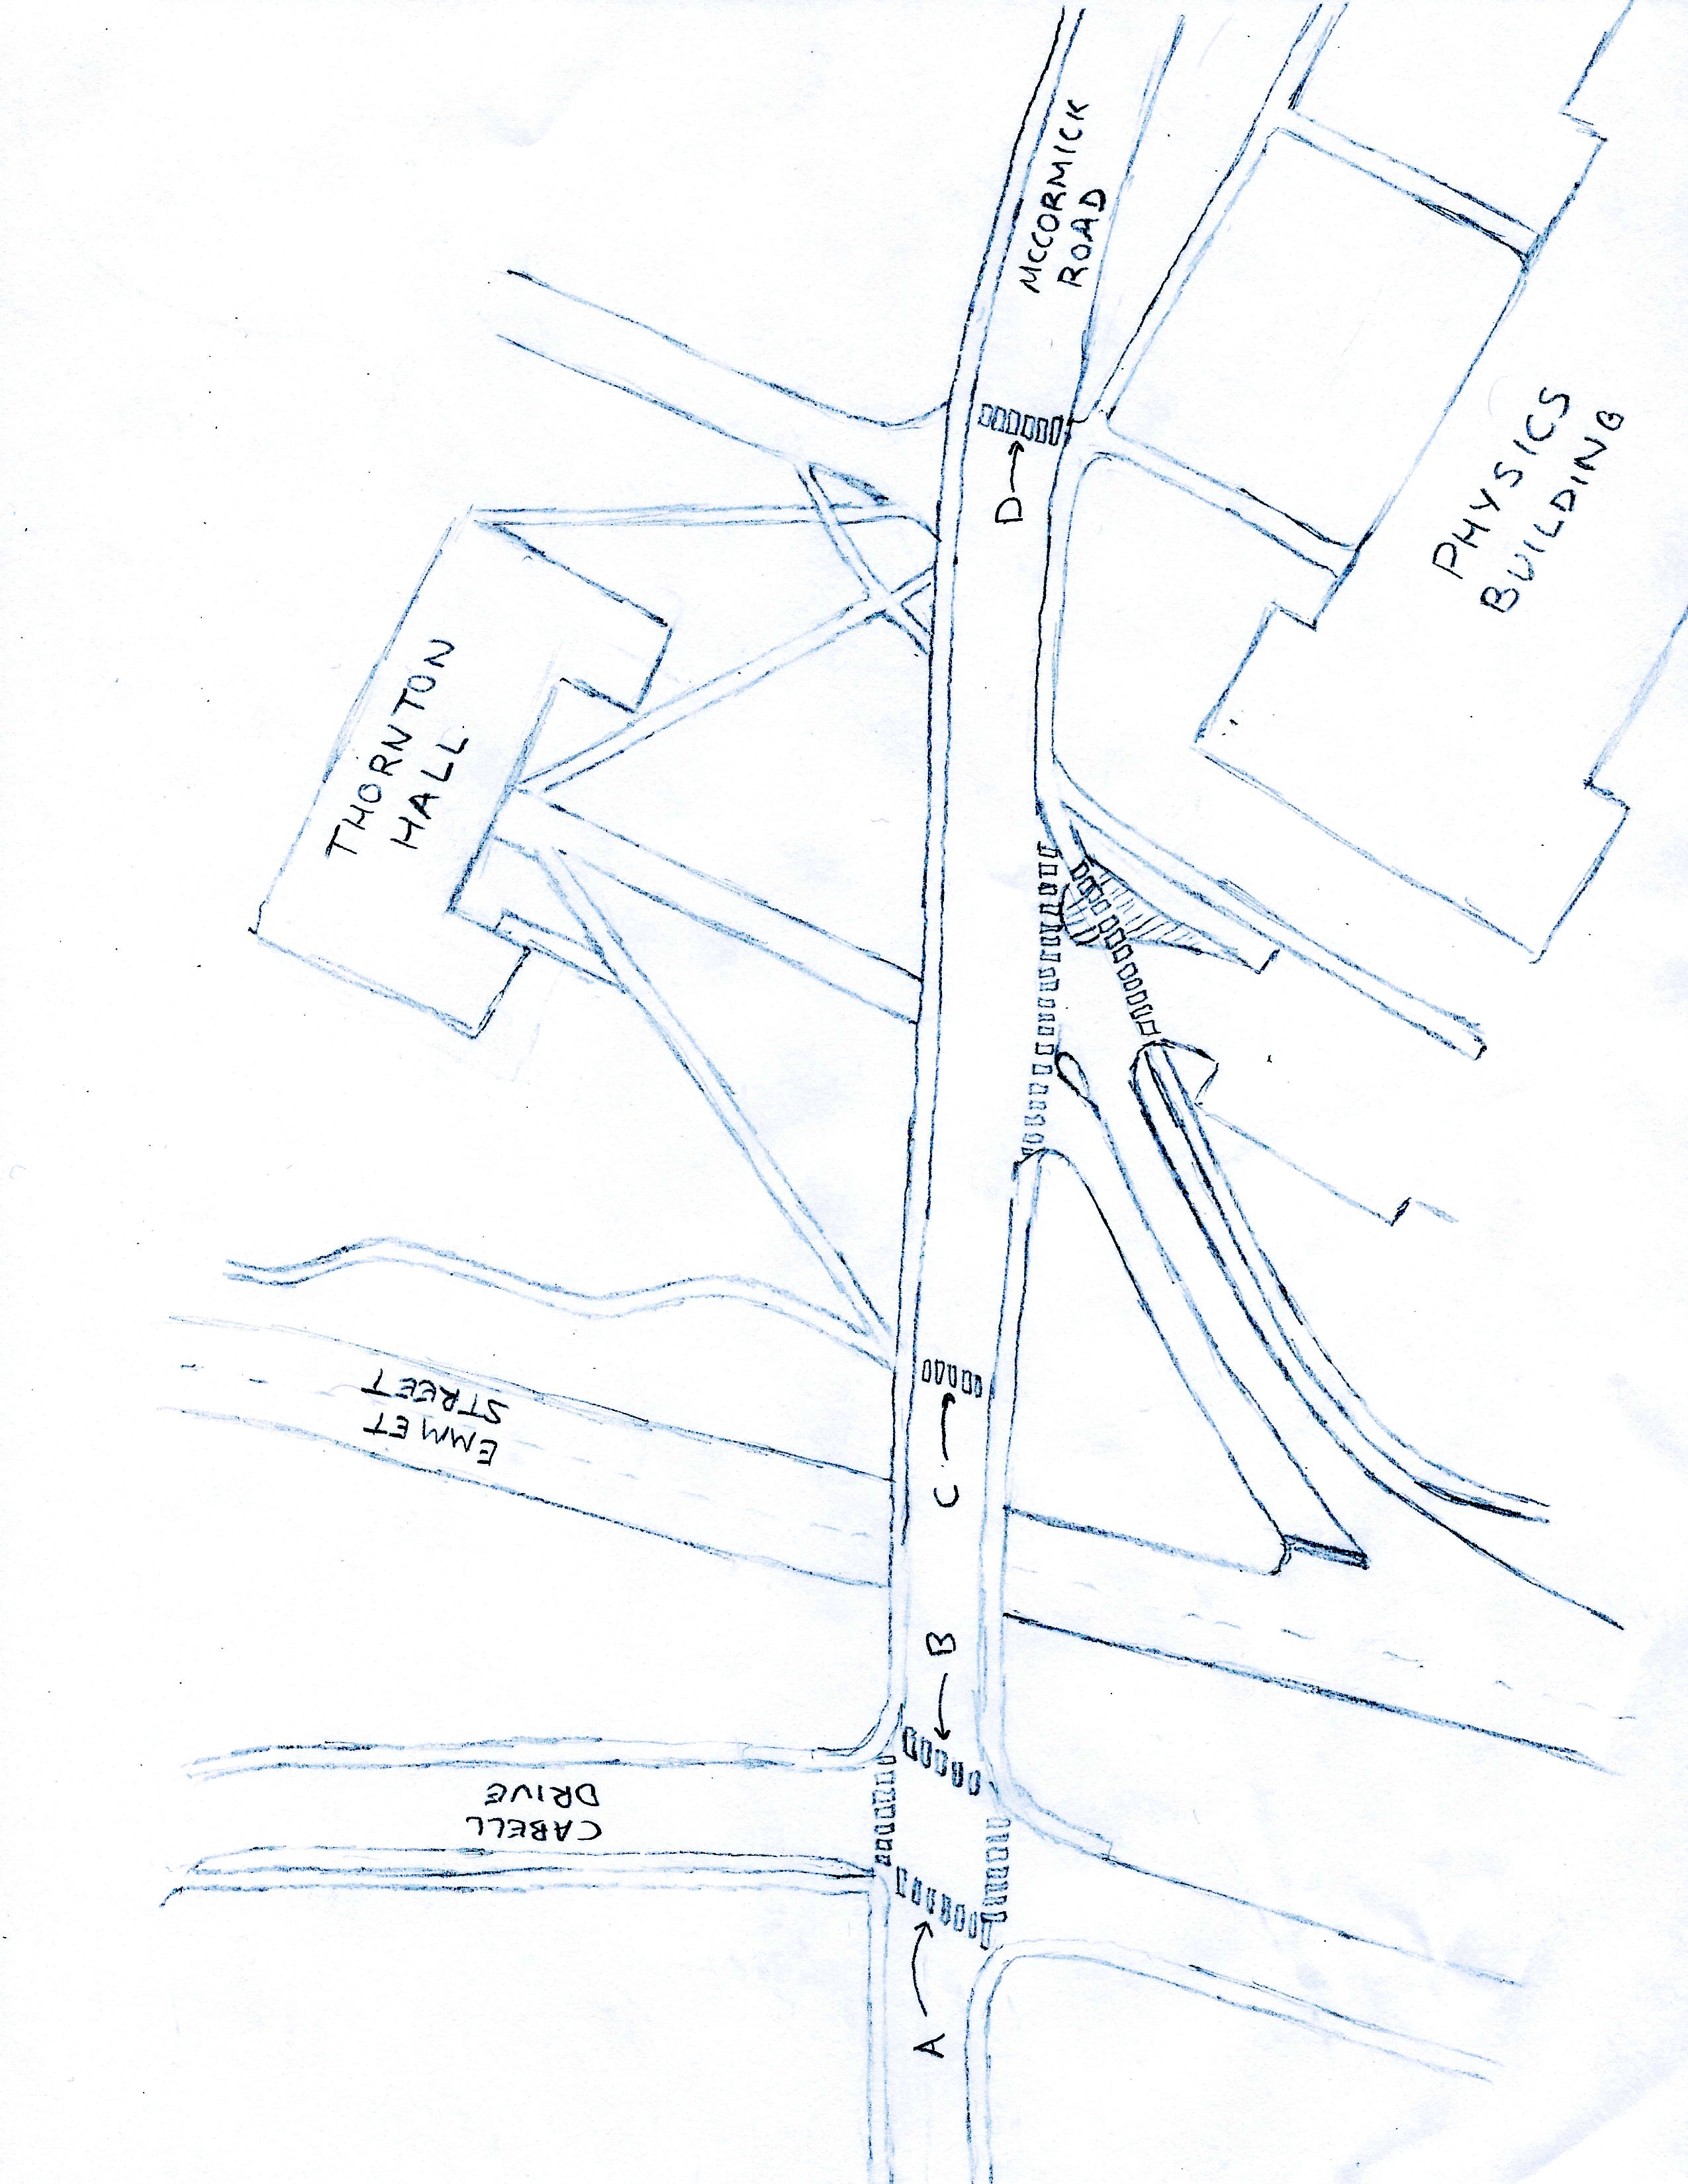 MCCORMICK
ROAD
D
PHYSICS
BUILDING
THORNTON
HALL
EMMET
STREET
C
B
CABELL
DRIVE
A